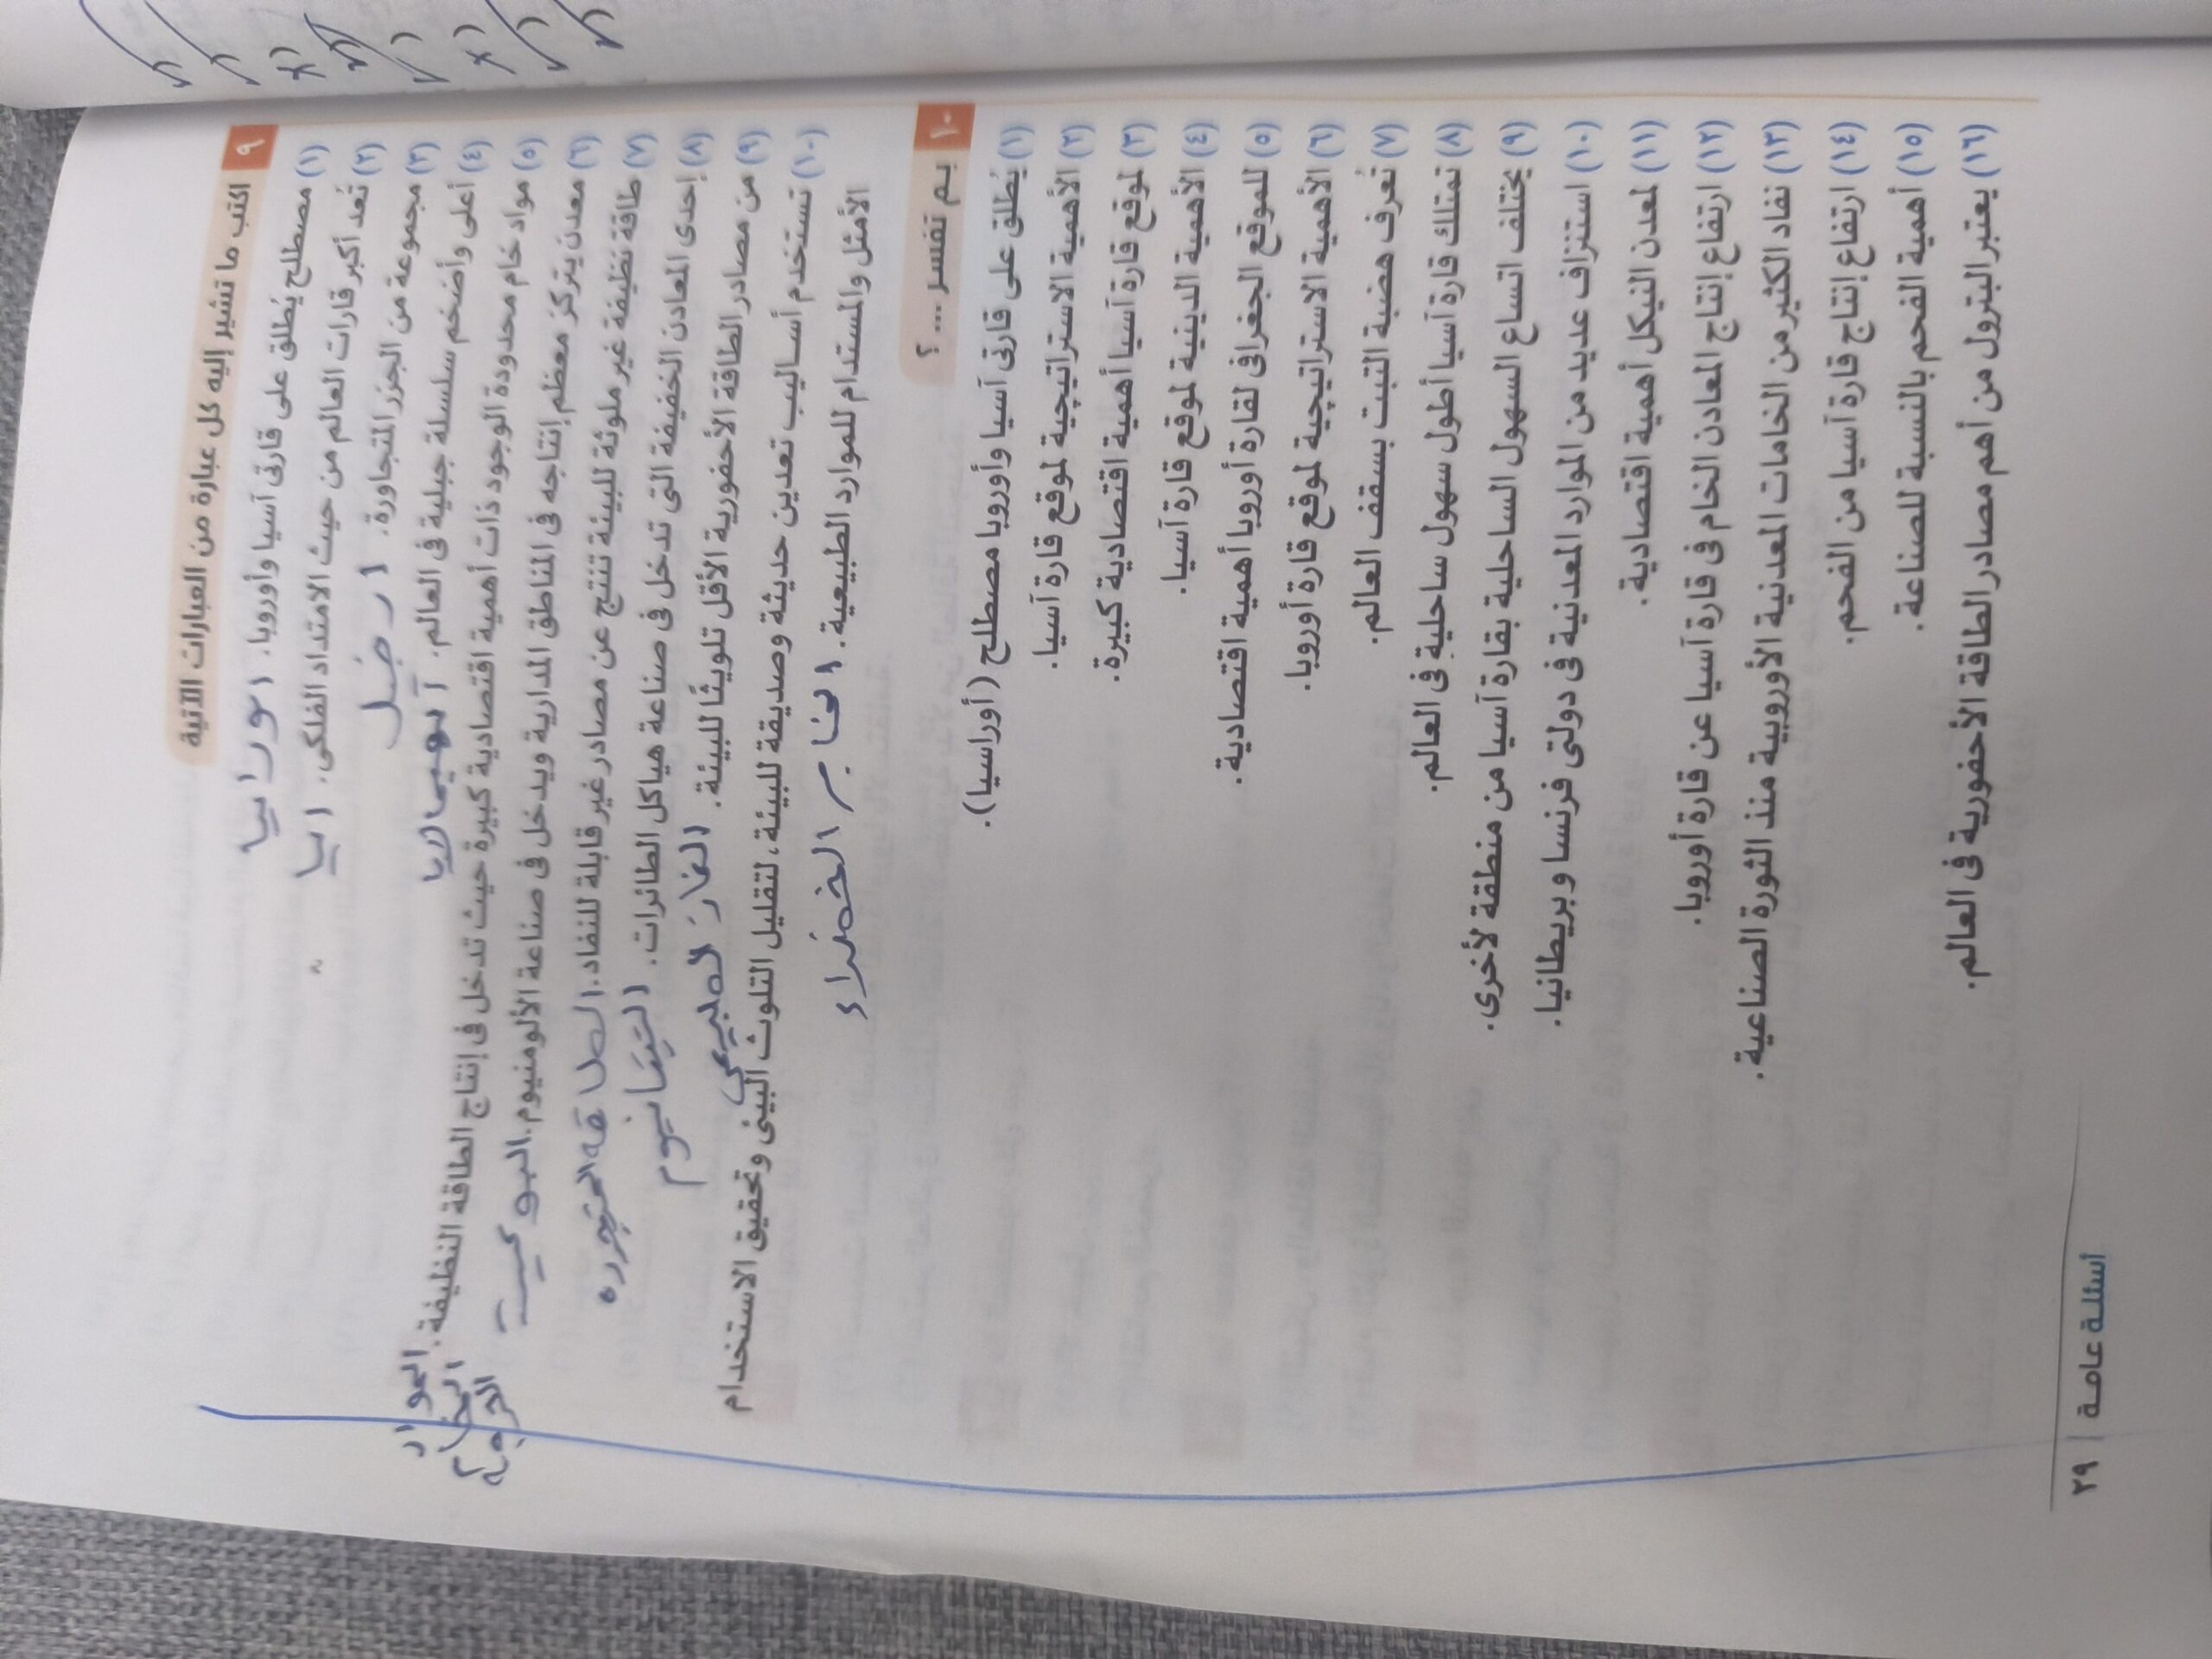 ٩ اكتب ما تشير إليه كل عبارة من العبارات الآتية
(١) مصطلح يُطلق على قارتى آسيا وأوروبا. اورابيا
(٢) تُعد أكبر قارات العالم من حيث الامتداد الفلكى. اسيا
(٣) مجموعة من الجزر المتجاورة. ارخبيل
(٤) أعلى وأضخم سلسلة جبلية فى العالم. الهيمالايا
(٥) مواد خام محدودة الوجود ذات أهمية اقتصادية كبيرة حيث تدخل فى إنتاج الطاقة النظيفة. المواد الخام الحرجة
(٦) معدن يتركز معظم إنتاجه فى المناطق المدارية ويدخل فى صناعة الألومنيوم. البوكسيت
(٧) طاقة نظيفة غير ملوثة للبيئة تنتج عن مصادر غير قابلة للنفاد. الطاقه المتجدده
(٨) إحدى المعادن الخفيفة التى تدخل فى صناعة هياكل الطائرات. التيتانيوم
(٩) من مصادر الطاقة الأحفورية الأقل تلويثًا للبيئة. الغاز الطبيعى
(١٠) تستخدم أساليب تعدين حديثة وصديقة للبيئة، لتقليل التلوث البيئى وتحقيق الاستخدام
الأمثل والمستدام للموارد الطبيعية. الخضراء
١٠ بم تفسر ... ؟
(١) يُطلق على قارتى آسيا وأوروبا مصطلح (أوراسيا).
(٢) الأهمية الاستراتيجية لموقع قارة آسيا.
(٣) لموقع قارة آسيا أهمية اقتصادية كبيرة.
(٤) الأهمية الدينية لموقع قارة آسيا.
(٥) للموقع الجغرافى لقارة أوروبا أهمية اقتصادية.
(٦) الأهمية الاستراتيجية لموقع قارة أوروبا.
(٧) تُعرف هضبة التبت بسقف العالم.
(٨) تمتلك قارة آسيا أطول سهول ساحلية فى العالم.
(٩) يختلف اتساع السهول الساحلية بقارة آسيا من منطقة لأخرى.
(١٠) استنزاف عديد من الموارد المعدنية فى دولتى فرنسا وبريطانيا.
(١١) لمعدن النيكل أهمية اقتصادية.
(١٢) ارتفاع إنتاج المعادن الخام فى قارة آسيا عن قارة أوروبا.
(١٣) نفاد الكثير من الخامات المعدنية الأوروبية منذ الثورة الصناعية.
(١٤) ارتفاع إنتاج قارة آسيا من الفحم.
(١٥) أهمية الفحم بالنسبة للصناعة.
(١٦) يعتبر البترول من أهم مصادر الطاقة الأحفورية فى العالم.
أسئلة عامة | ٢٩